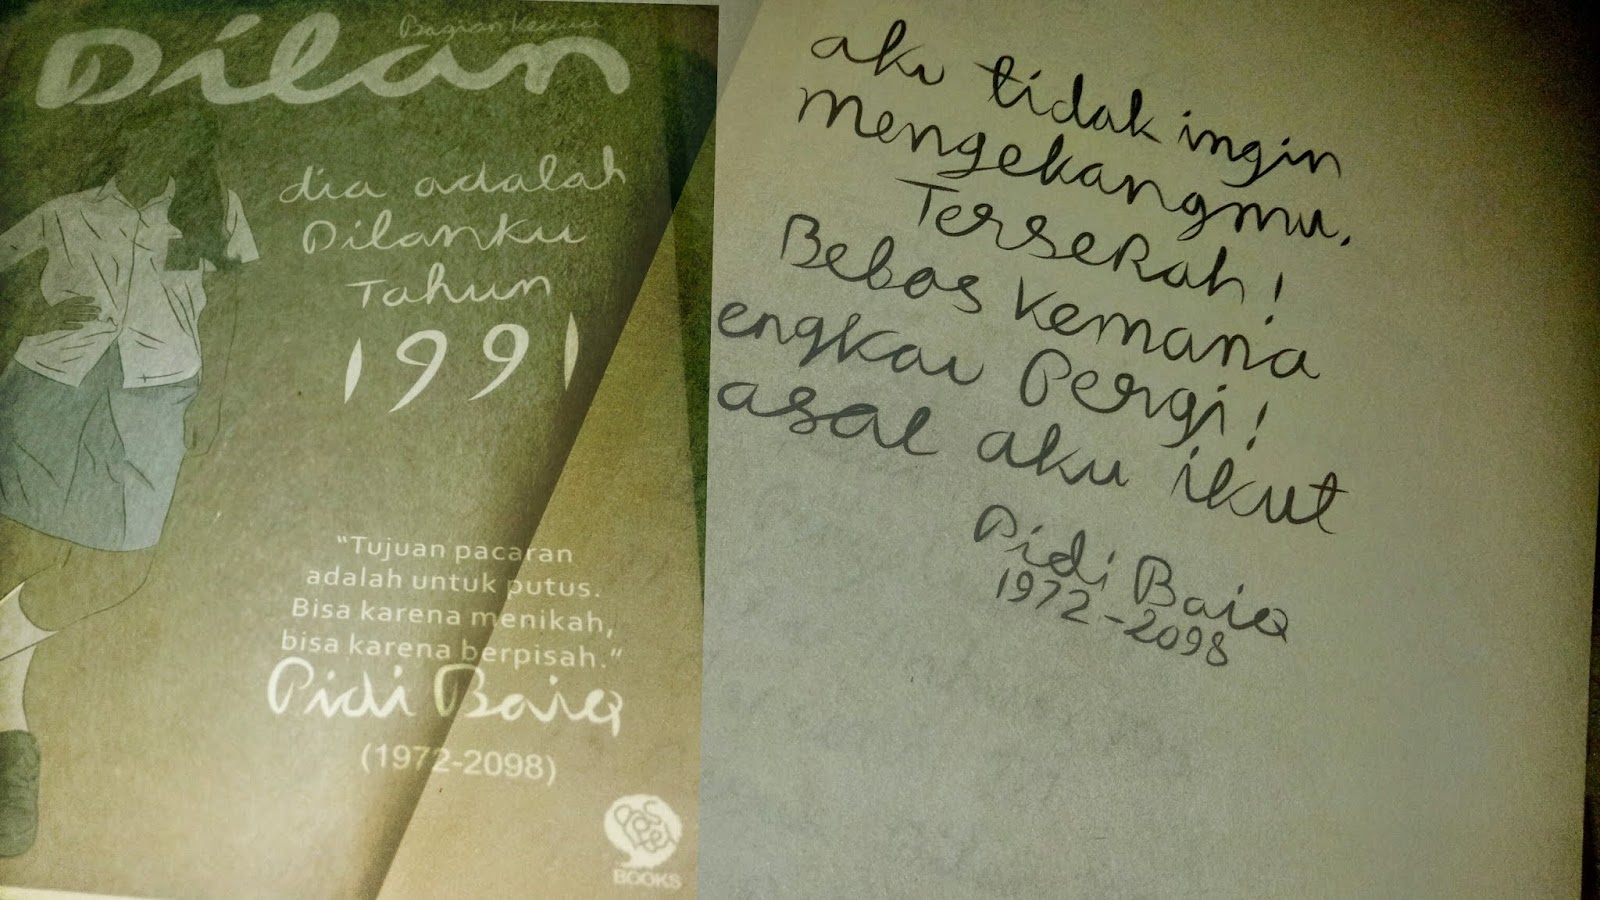 Dilan
Bagian Kedua
dia adalah
Dilanku
Tahun
1991
"Tujuan pacaran
adalah untuk putus.
Bisa karena menikah,
bisa karena berpisah."
Pidi Baiq
(1972-2098)
BOOKS
aku tidak ingin
mengekangmu.
TerseRah!
Bebas kemana
engkau Pergi!
asal aku ikut
Pidi Baiq
1972-2098